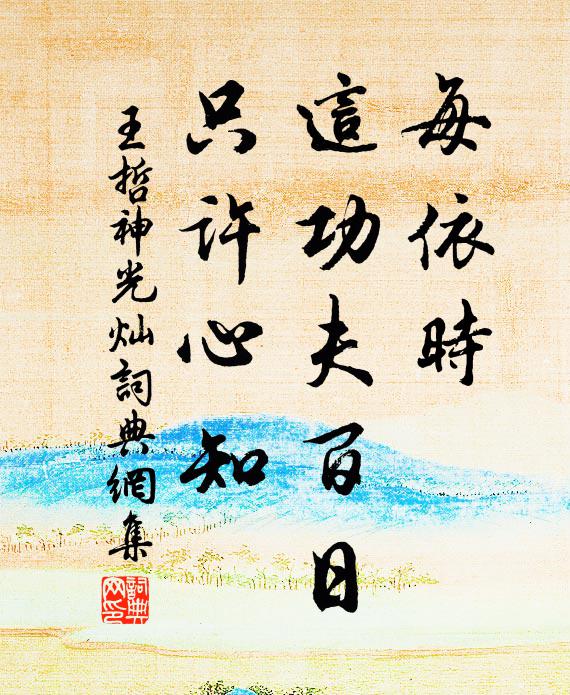 每依時
這功夫百日
只許心知
王哲神光灿詞典網集
詞典網印